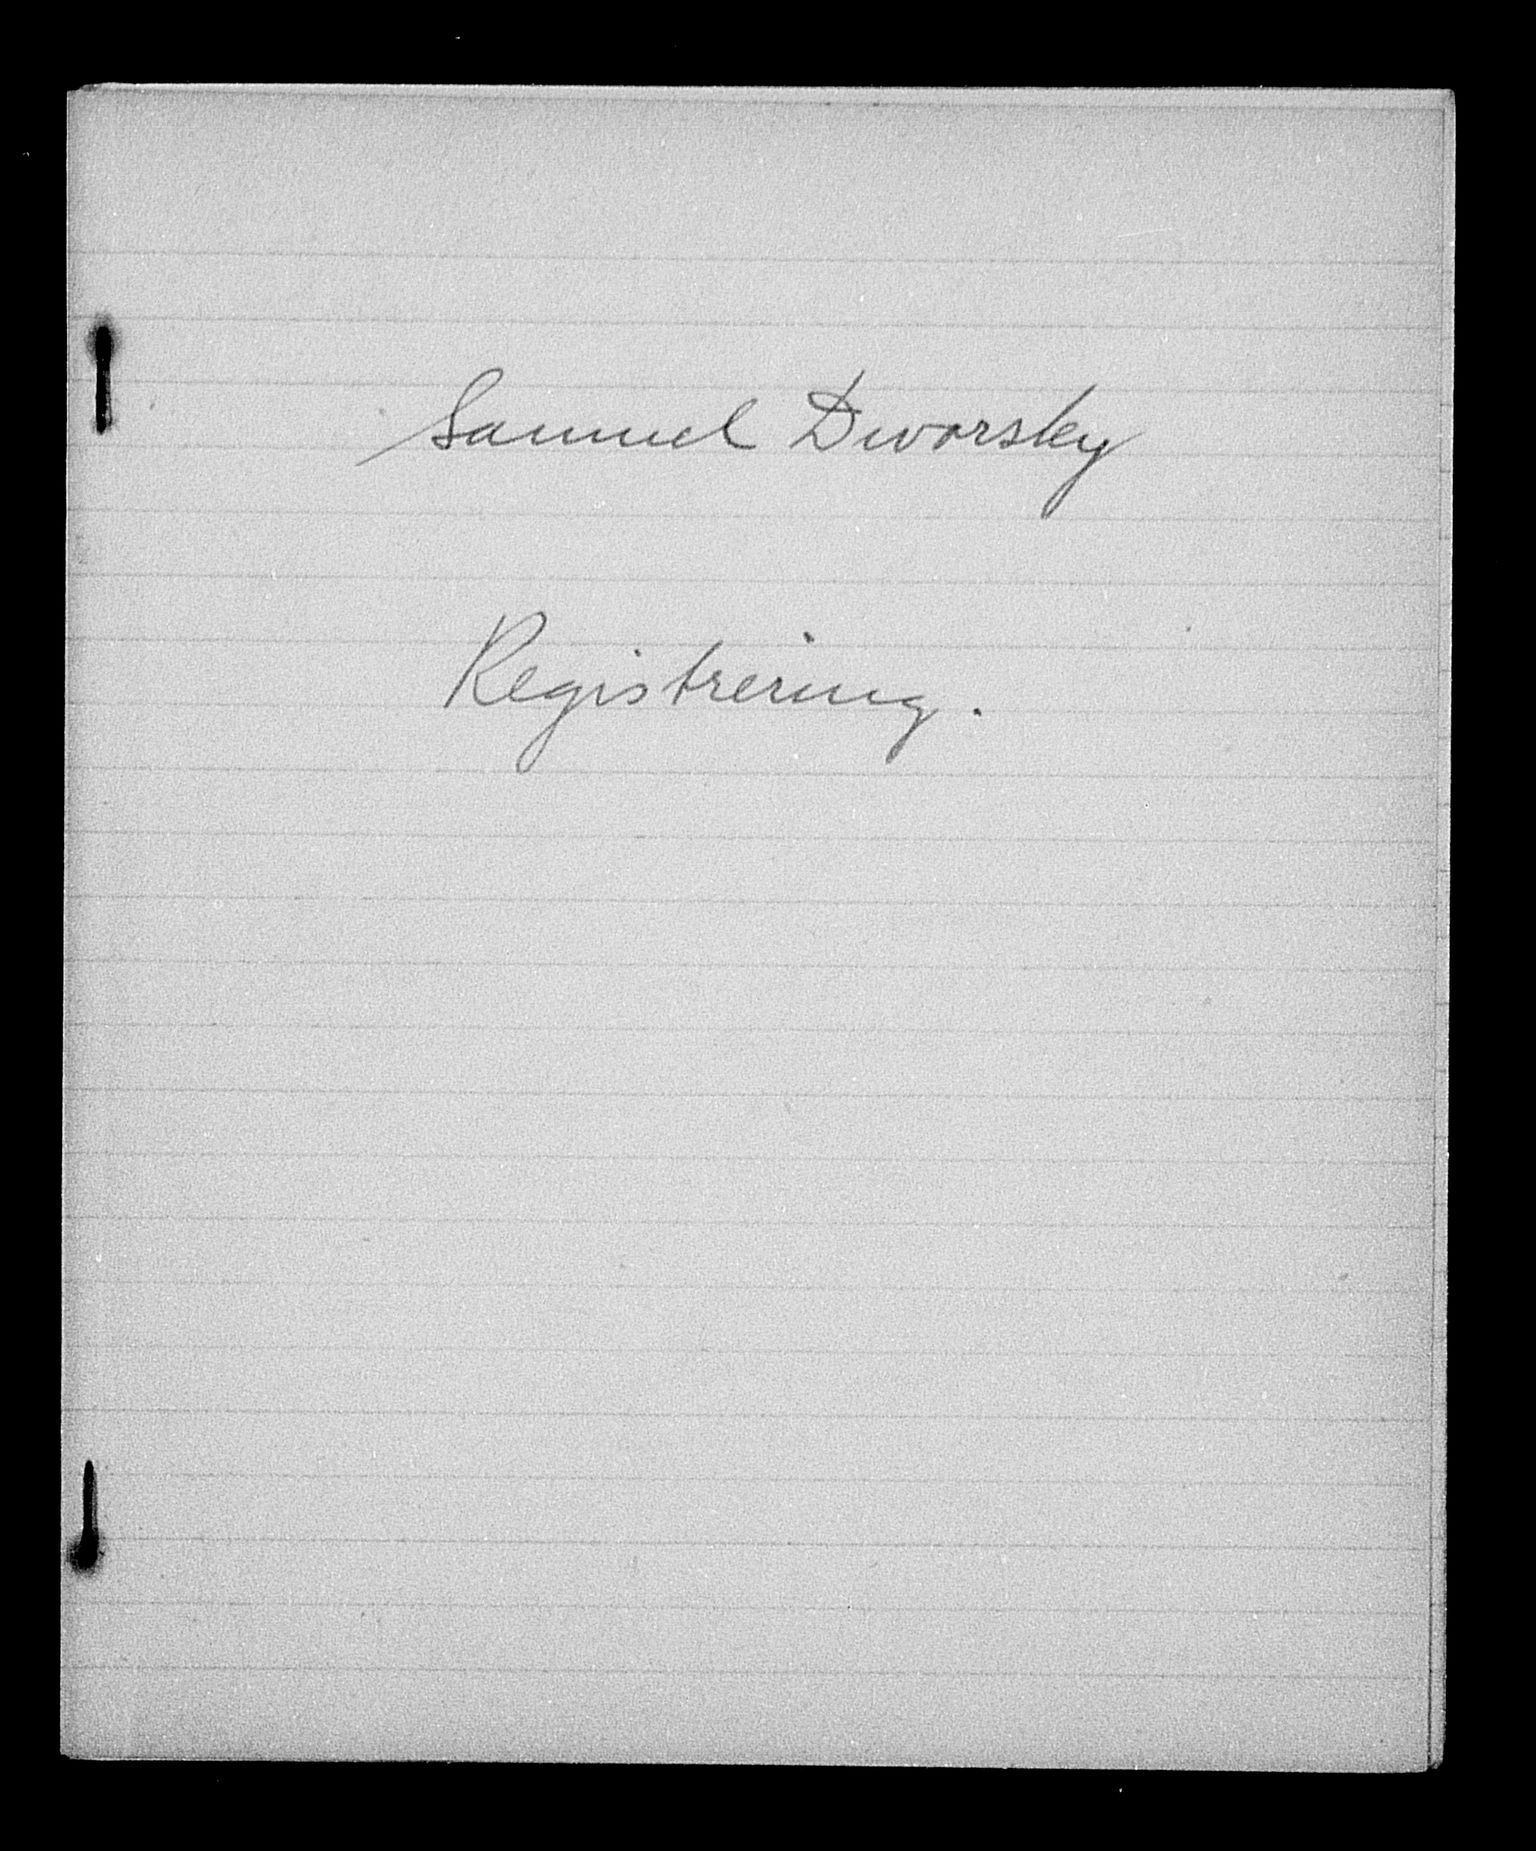 Samuel Dworsky
Registrering.